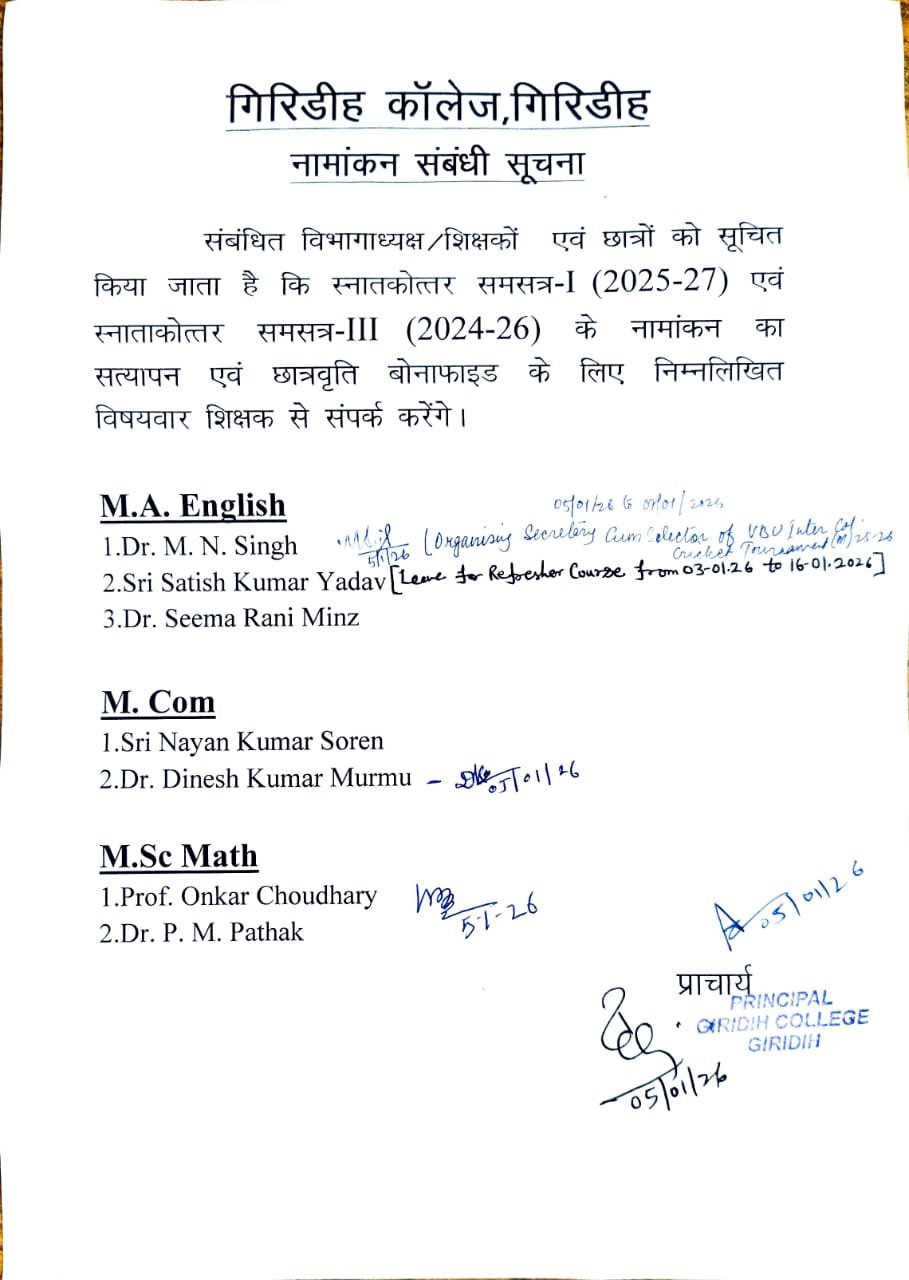 गिरिडीह कॉलेज,गिरिडीह
नामांकन संबंधी सूचना
संबंधित विभागाध्यक्ष/शिक्षकों एवं छात्रों को सूचित
किया जाता है कि स्नातकोत्तर समसत्र-I (2025-27) एवं
स्नाताकोत्तर समसत्र-III (2024-26) के नामांकन का
सत्यापन एवं छात्रवृति बोनाफाइड के लिए निम्नलिखित
विषयवार शिक्षक से संपर्क करेंगे।
M.A. English
05/01/26 to 09/01/2026
1.Dr. M. N. Singh 5/1/26 (Organising Secretary Cum Selector of VBU Inter Col
Cricket Tournament (M) 25-26
2.Sri Satish Kumar Yadav [Leave for Refresher Course from 03-01-26 to 16-01-2026]
3.Dr. Seema Rani Minz
M. Com
1.Sri Nayan Kumar Soren
2.Dr. Dinesh Kumar Murmu - 05/01/26
M.Sc Math
1.Prof. Onkar Choudhary 5-1-26
2.Dr. P. M. Pathak
05/01/26
प्राचार्य
PRINCIPAL
GIRIDIH COLLEGE
GIRIDIH
05/01/26